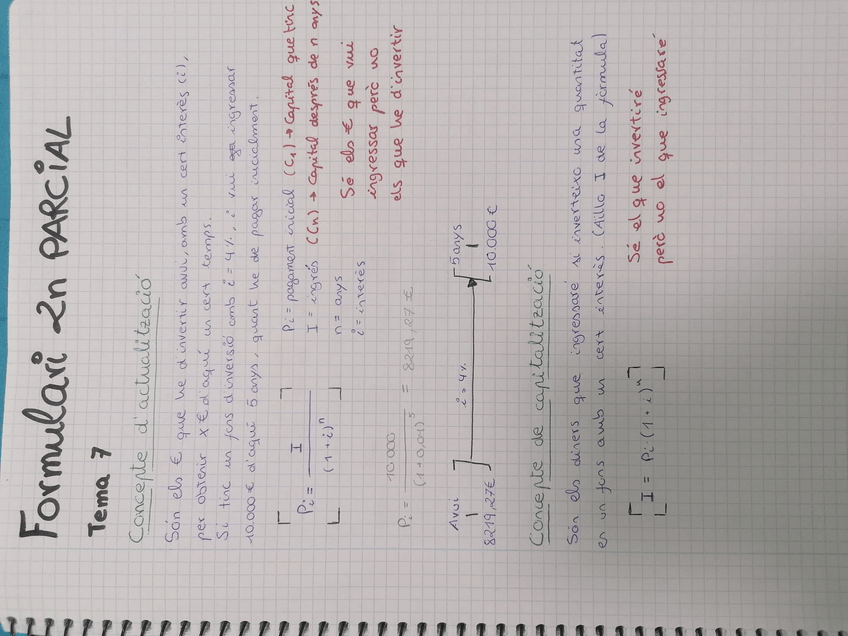 Formulari 2n PARCIAL
Tema 7
Concepte d'actualització
Són els € que he d'invertir avui, amb un cert interès (i),
per obtenir x € d'aquí un cert temps.
Si tinc un fons d'inversió amb i = 4%, i vui ingressar
10.000 € d'aquí 5 anys, quant he de pagar inicialment.
[Pi = I / (1+i)^n]
Pi = pagament inicial (C1) → Capital que tinc
I = ingrés (Cn) → Capital després de n anys
n = anys
i = interès
Sé els € que vui
ingressar però no
els que he d'invertir
Pi = 10000 / (1+0,04)^5 = 8219,27 €
Avui
i = 4%
5 anys
8219,27€
10.000 €
Concepte de capitalització
Són els diners que ingressaré si inverteixo una quantitat
en un fons amb un cert interès. (Aïllo I de la fórmula)
[I = Pi·(1+i)^n]
Sé el que invertiré
però no el que ingressaré